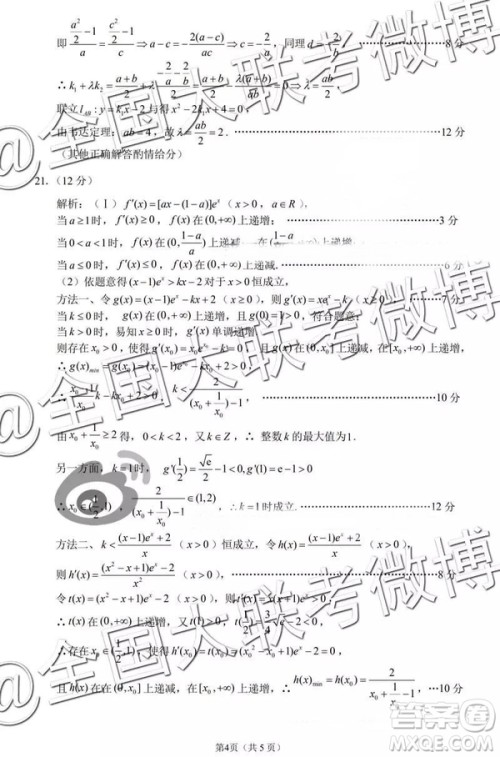 即 (a²/2-1)/a = (c²/2-1)/c ⇒ a-c = -2(a-c)/ac ⇒ -c = 2/a，同理 d = -2/b， 8分
∴k₁+λk₂ = (a+b)/2 +
联立 l_AB: y=k₁x-2 与得 x²-2k₁x+4=0，
由韦达定理：ab=4，故λ=ab/2=2. 12分
(其他正确解答酌情给分)
21.（12分）
解析：（Ⅰ）f'(x)=[ax-(1-a)]eˣ（x>0，a∈R），
当a≥1时，f'(x)≥0，f(x)在(0,+∞)上递增； 3分
当0<a<1时，f(x)在(0,(1-a)/a)上递减，在((1-a)/a,+∞)上递增；
当a≤0时，f'(x)≤0，f(x)在(0,+∞)上递减. 6分
（2）依题意得(x-1)eˣ>kx-2对于x>0恒成立，
方法一、令g(x)=(x-1)eˣ-kx+2（x>0），则g'(x)=xeˣ-k（x>0）， 7分
当k≤0时， g(x)在(0,+∞)上递增，且g(0)=1>0，符合题意；
当k>0时，易知x>0时，g'(x)单调递增.
则存在x₀>0，使得g'(x₀)=x₀e^x₀-k=0，且g(x)在(0,x₀]上递减，在[x₀,+∞)上递增，
∴g(x)min=g(x₀)=(x₀-1)e^x₀-kx₀+2>0，
∴ k<2/((x₀+1/x₀)-1) 10分
由x₀+1/x₀≥2得，0<k<2，又k∈Z，∴整数k的最大值为1.
另一方面，k=1时，g'(1/2)=√e/2-1<0,g'(1)=e-1>0，
∴x₀∈(1/2,1)，2/((x₀+1/x₀)-1)∈(1,2) ∴k=1时成立. 12分
方法二、k<((x-1)eˣ+2)/x（x>0）恒成立，令h(x)=((x-1)eˣ+2)/x（x>0），
则h'(x)=((x²-x+1)eˣ-2)/x²（x>0） 8分
令t(x)=(x²-x+1)eˣ-2（x>0），则t'(x)=x(x+1)eˣ>0（x>0）
∴t(x)在(0,+∞)上递增，又t(1)>0，
∴存在x₀∈(1/2,1)，使得h'(x₀)=t(x₀)=0，
且h(x)在在(0,x₀]上递减，在[x₀,+∞)上递增，∴h(x)min=h(x₀)=2/(x₀+1/x₀-1)，…10分
第4页（共5页）
@全国大联考微博
@全国大联考微博
@全国大联考微博